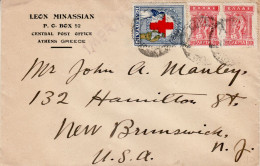 LEON MINASSIAN
P. O. BOX 52
CENTRAL POST OFFICE
ATHENS GREECE
Mr John A. Manley,
132 Hamilton St.
New Brunswick,
N. J.
U.S.A.